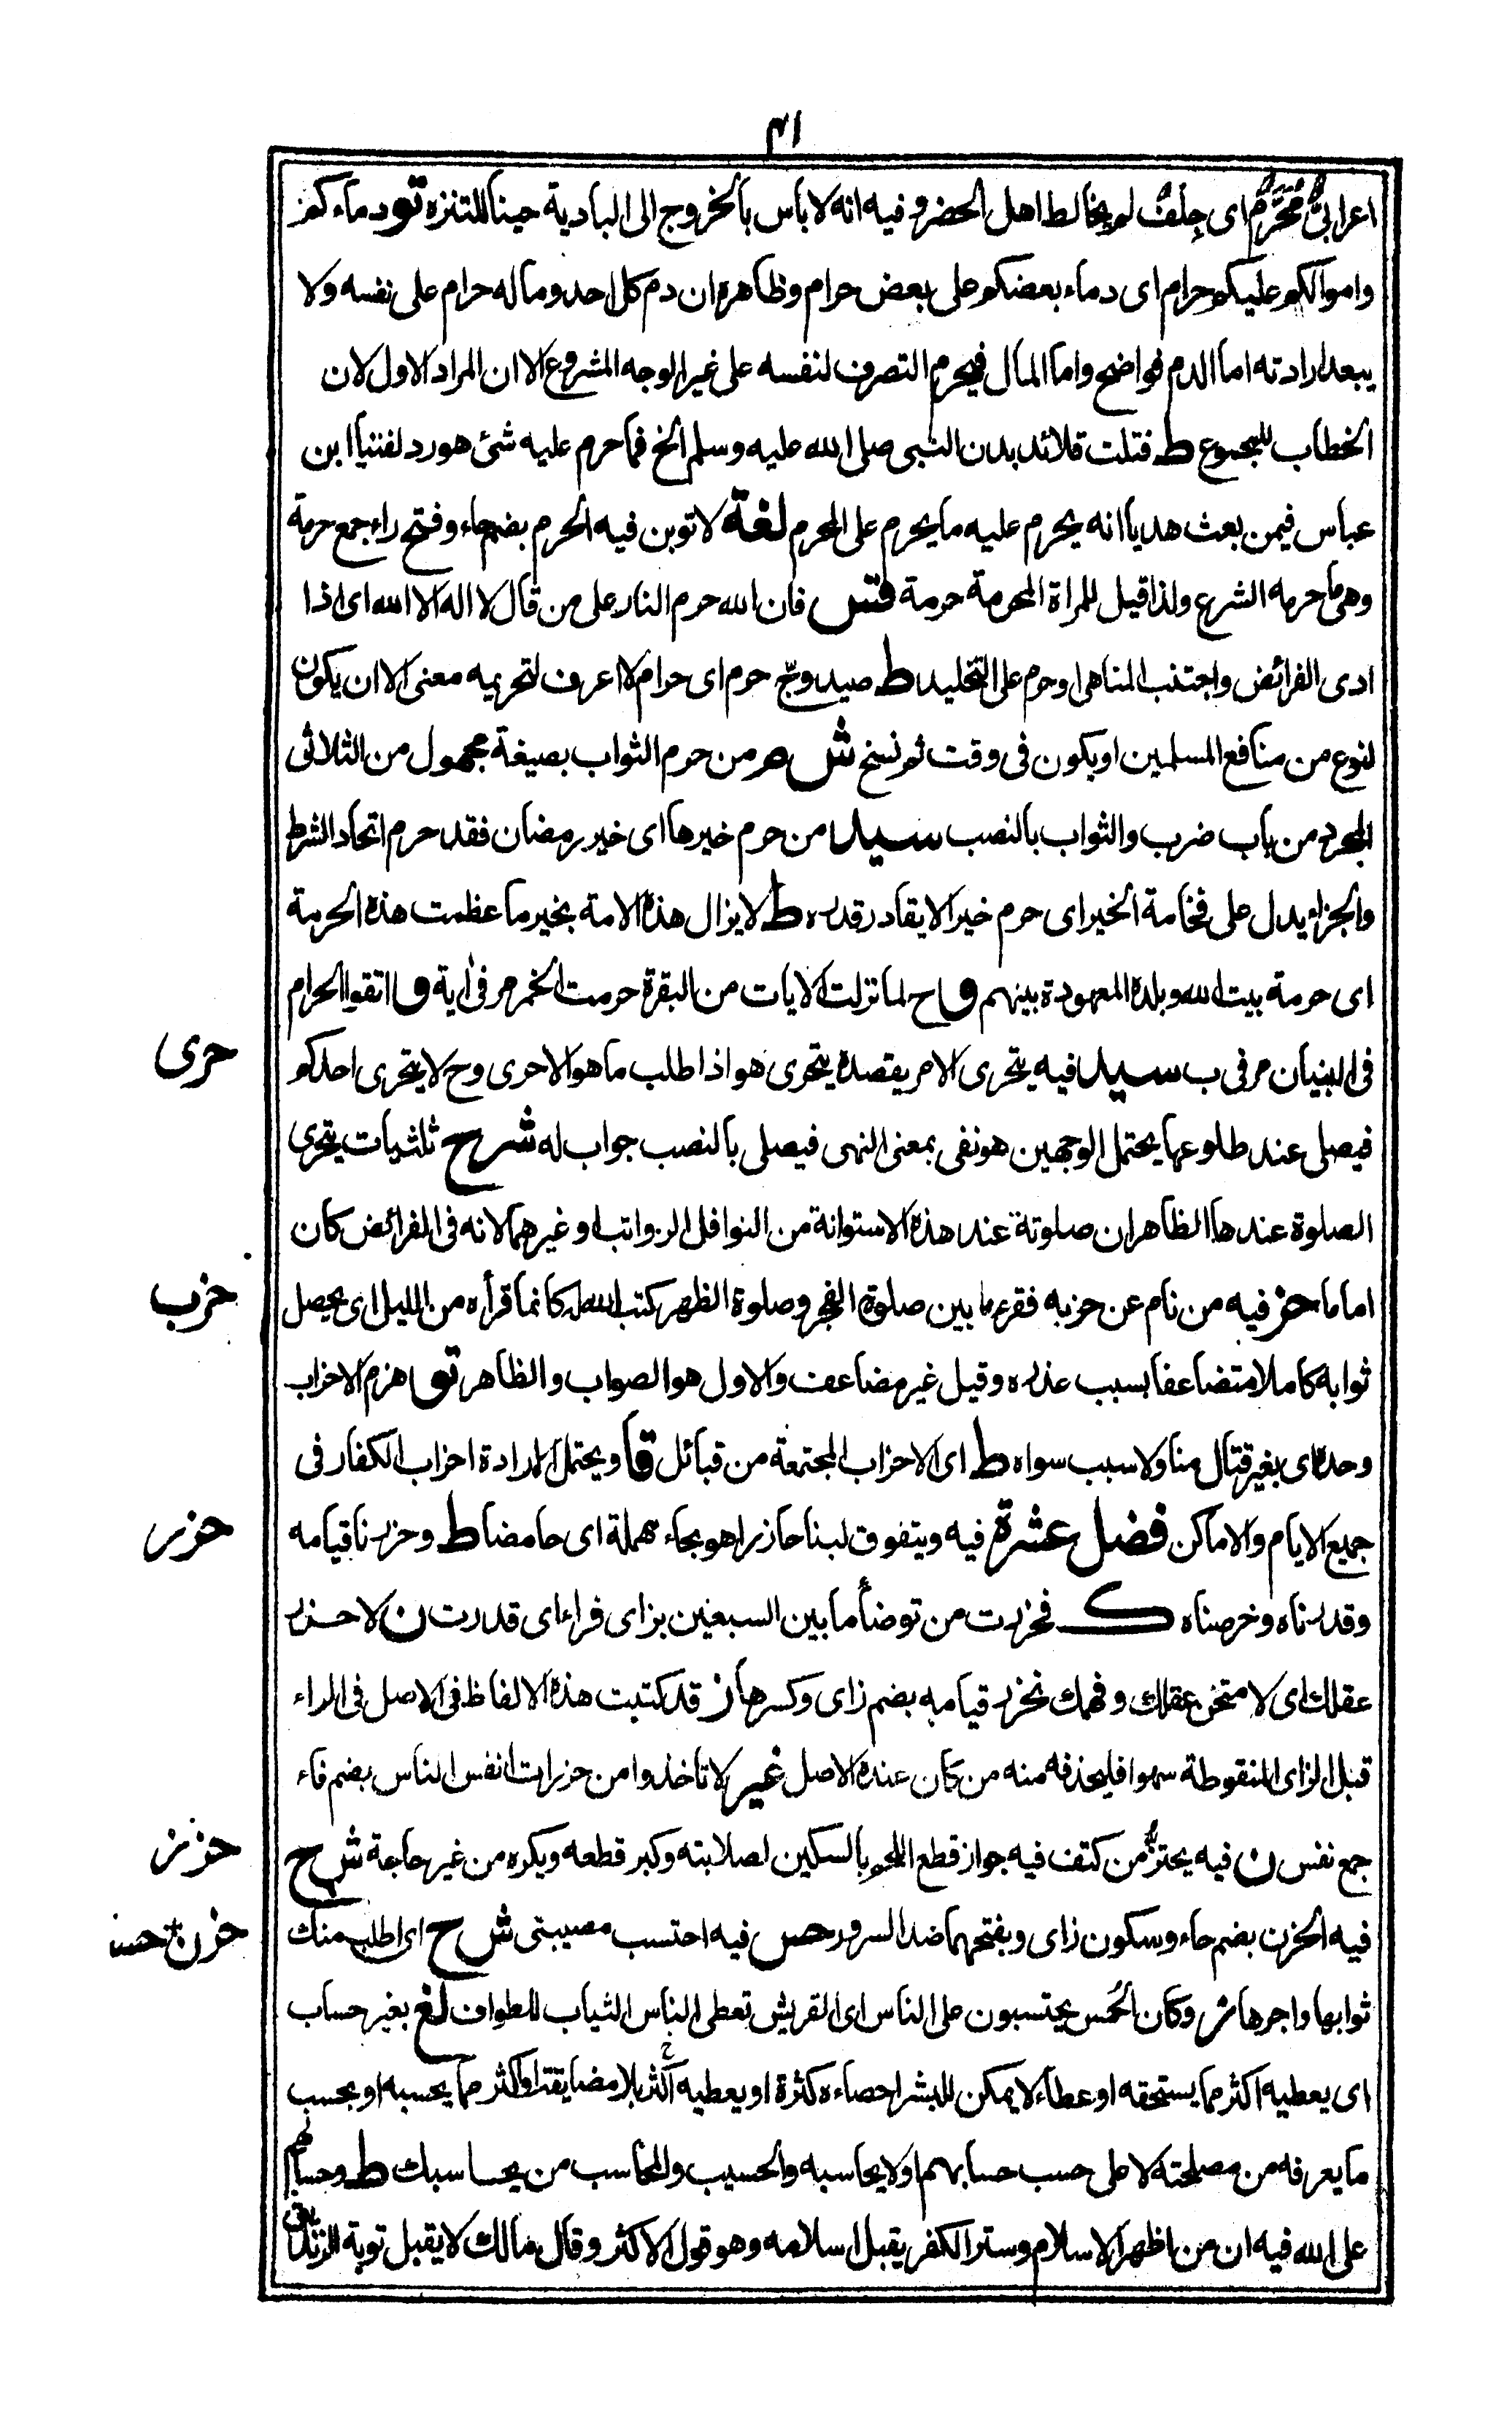 ٤١
اعرابيٌّ مُحَرَّمٌ اى جِلفٌ لم يخالط اهل الحضر و فيه انه لا بأس بالخروج الى البادية حينا للتنزه تو دماءكم
واموالكم عليكم حرام اى دماء بعضكم على بعض حرام وظاهره ان دم كل احد وماله حرام على نفسه ولا
يبعد ارادته اما الدم فواضح واما المال فيحرم التصرف لنفسه على غير الوجه المشروع الا ان المراد الاول لان
الخطاب للمجموع ط فتلت قلائد بدن النبى صلى الله عليه وسلم الخ فما حرم عليه شئ هو رد لفتيا ابن
عباس فيمن بعث هديا انه يحرم عليه ما يحرم على المحرم لغة لا توبن فيه الحرم بضم حاء وفتح راء جمع حرمة
وهى ما حرمه الشرع ولذا قيل للمراة المحرمة حرمة فتس فان الله حرم النار على من قال لا اله الا الله اى اذا
ادى الفرائض واجتنب المناهى او حرم على التخليد ط صيد وجّ حرم اى حرام لا اعرف لتحريمه معنى الا ان يكون
لنوع من منافع المسلمين او يكون فى وقت ثم نسخ ش مر من حرم الثواب بصيغة مجهول من الثلاثى
المجرد من باب ضرب والثواب بالنصب سيد من حرم خيرها اى خير رمضان فقد حرم اتحاد الشرط
والجزاء يدل على فخامة الخير اى حرم خيرا لا يقادر قدره ط لا يزال هذه الامة بخير ما عظمت هذه الحرمة
اى حرمة بيت الله وبلده المعهودة بينهم و ح لما نزلت الايات من البقرة حرمت الخمر مر فى اية و اتقوا الحرام
فى البنيان مر فى ب سيد فيه يتحرى الامر يقصده يتحرى هو اذا طلب ما هو الاحرى وح لا يتحرى احدكم
فيصلى عند طلوعها يحتمل الوجهين هو نفى بمعنى النهى فيصلى بالنصب جواب له شرح ثلثيات يتحرى
الصلوة عندها الظاهر ان صلوتة عند هذه الاستوانة من النوافل الرواتب او غيرهما لانه فى الفرائض كان
اماما حز فيه من نام عن حزبه فقرء ما بين صلوة الفجر و صلوة الظهر كتب الله له كانما قرأه من الليل اى يحصل
ثوابه كاملا متضاعفا بسبب عذره وقيل غير مضاعف والاول هو الصواب والظاهر تو هزم الاحزاب
وحده اى بغير قتال منا ولا سبب سواه ط اى الاحزاب المجتمعة من قبائل قا ويحتمل المرادة احزاب الكفار فى
جميع الايام والاماكن فضل عشرة فيه ويتفوق لبنا حازرا هو بحاء مهملة اى حامضا ط وحزرنا قيامه
وقدرناه وخرصناه ك فحزرت من توضأ ما بين السبعين بزاى فراء اى قدرت ن لا حزر
عقلك اى لا متحن عقلك وفهمك نحزر قيامه بضم زاى وكسرها ز قد كتبت هذه الالفاظ فى الاصل فى الراء
قبل الزاى المنقوطة سهوا فليحذفه منه من كان عنده الاصل غير لا تاخذوا من حزرات انفس الناس بضم فاء
جمع نفس ن فيه يحتزُّ من كتف فيه جواز قطع اللحم بالسكين لصلابته وكبر قطعه ويكره من غير حاجة ش ح
فيه الحزن بضم حاء وسكون زاى وبفتحهما ضد السرور حس فيه احتسب مصيبتى ش ح اى اطلب منك
ثوابها واجرها ش وكان الحُمس يحتسبون على الناس اى القريش تعطى الناس الثياب للطواف لغ بغير حساب
اى يعطيه اكثر مما يستحقه او عطاء لا يمكن للبشر احصاءه كثرة او يعطيه اكثر بلا مضايقة او اكثر مما يحسبه او بحسب
ما يعرفه من مصلحته لا على حسب حسابهم او لا يحاسبه والحسيب والمحاسب من يحاسبك ط وحسابهم
على الله فيه ان من اظهر الاسلام وستر الكفر يقبل اسلامه وهو قول الاكثر وقال مالك لا يقبل توبة الزنديق
حرى
حزب
حزر
حزز
حزن * حسب